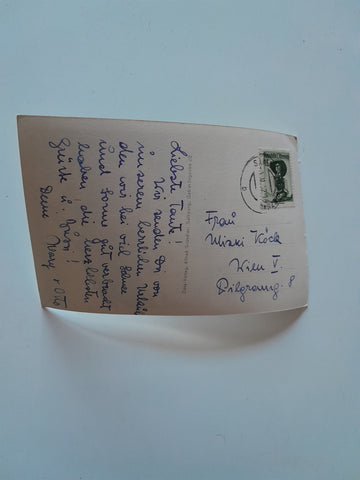 Liebste Tante!
Wir senden Dir von
unserem herrlichen Urlaub,
den wir bei viel Sonne
und Sonne gut verbracht
haben, die herzlichsten
Grüsse u. Küsse!
Deine Mary + Otto
Frau
Mizzi Köck
Wien V.
Pilgramg. 8